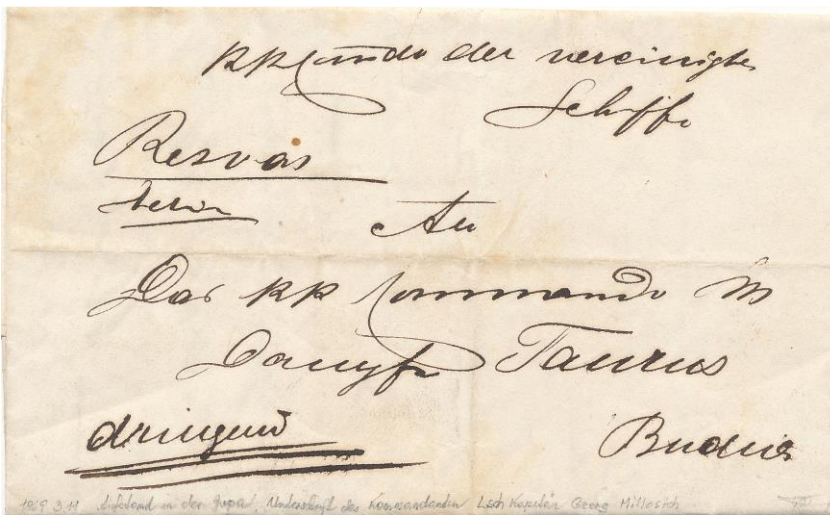 KK Comdo der vereinigten
Schiffe
Reservas
An
Das KK Commando Sr
Dampfr Taurus
dringend
Budua
1869 3.11 Aufstand in der Župa, Unterschrift des Kommandanten Lsch Kapitän Georg Millosich